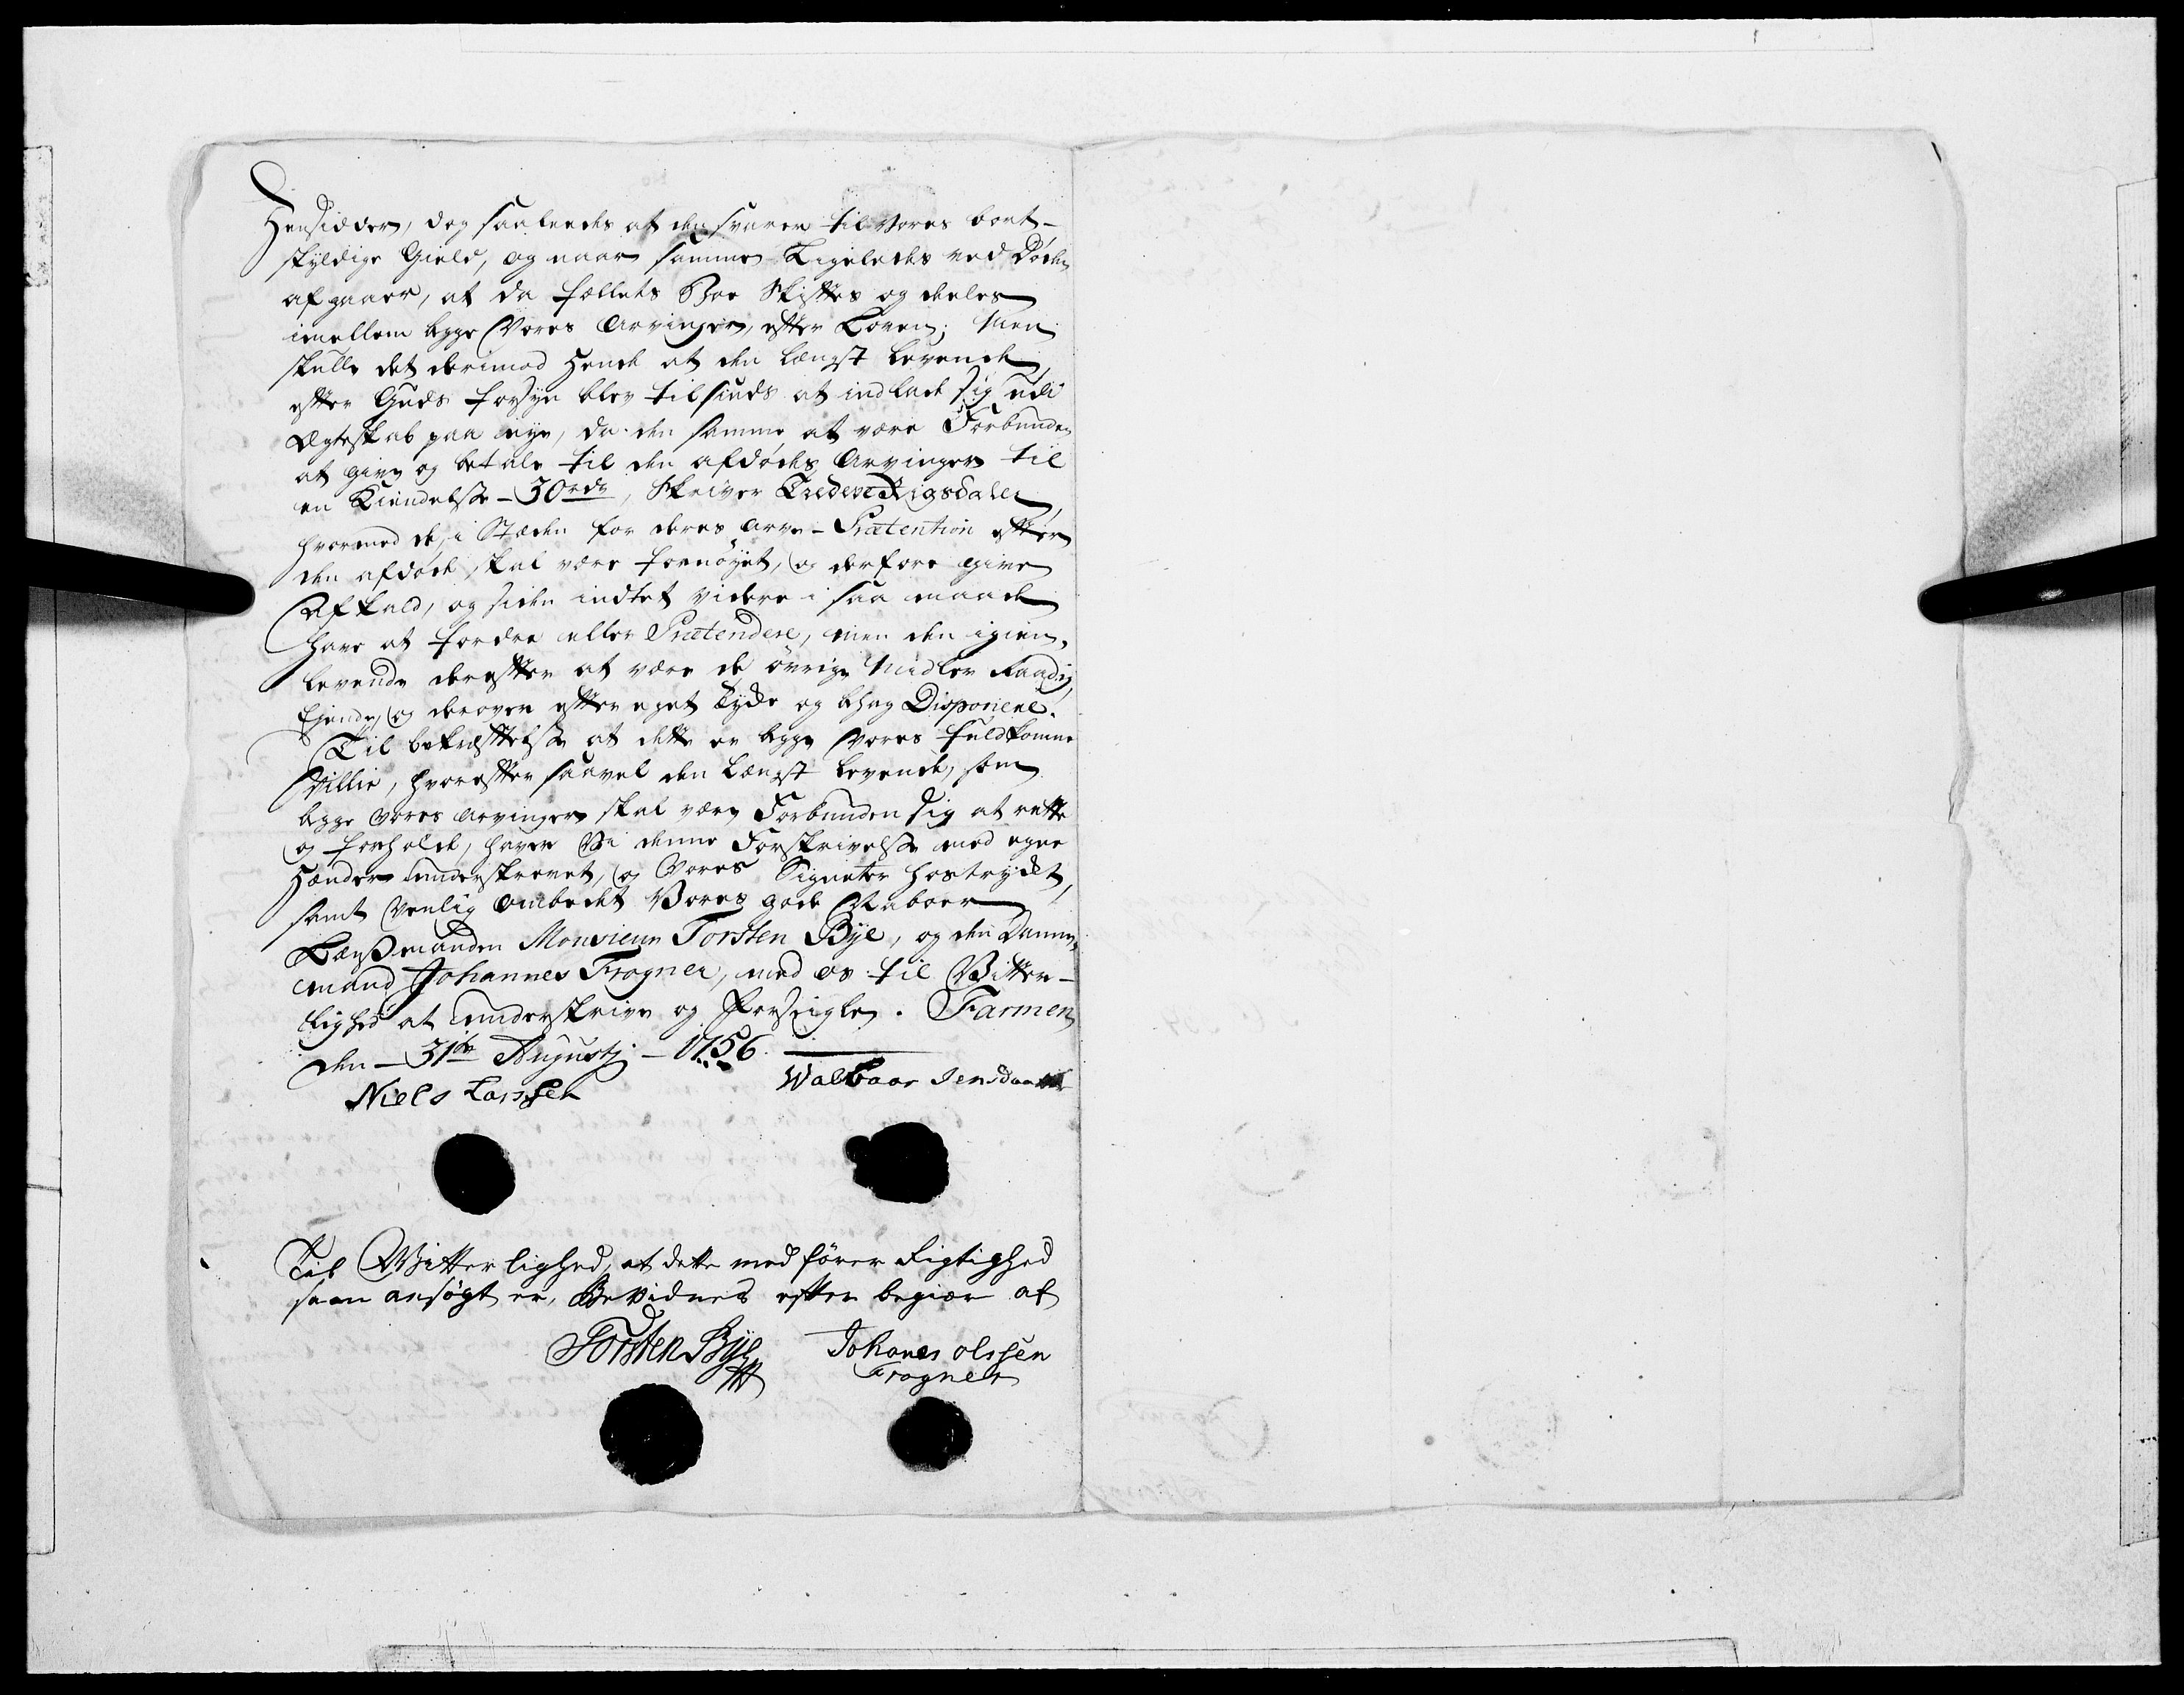 Hensidder, dog saaledes at den svarer til Vores bort-
skyldige Gield, og naar samme Ligeledes ved Døden
afgaar, at da fællets Boe Skiftes og deeles
imellem begge Vores Arvinger, efter Loven; Men
skulle det derimod Hende at den længst levende,
efter Guds forsyn blev tilsinds at indlade sig udi
Ægteskab paa nye, da den samme at være Forbunden
at give og betale til den afdødes Arvinger til
en Kiendelse - 30 rdr, Skriver Tredeve Rigsdaler,
hvormed de, i Stæden for deres Arve-Prætention efter
den afdøde skal være fornøyet, og derfore give
Afkald, og siden indtet videre i saa maade
have at fordre eller Prætendere, men den igien-
levende derefter at være de øvrige Midler Raadig,
Ejende, og derover efter eget Tyde og behag Disponere.
Til bekræftelse at dette er begge Vores fuldkomne
Villie, hvorefter saavel den Længst levende, som
begge Vores Arvinger skal være Forbunden sig at rette
og forholde, haver Vi denne Forskrivelse med egne
Hænder underskrevet, og Vores Signeter hostrykt,
samt Venlig ombedet Vores gode Naboer
Lænsmanden Monsieur Torsten Bye, og den Danne-
mand Johannes Frogner, med os til Vitter-
lighed at underskrive og forseigle. Farmen
den - 31te Augustj - 1756.
Niels Larssen Walbaar Jensdaatter
Til Vitterlighed, at dette med fører Rigtighed
som ansøgt er, Bevidnes efter begiær af
Torsten Bye Johanes olssen
Frogner